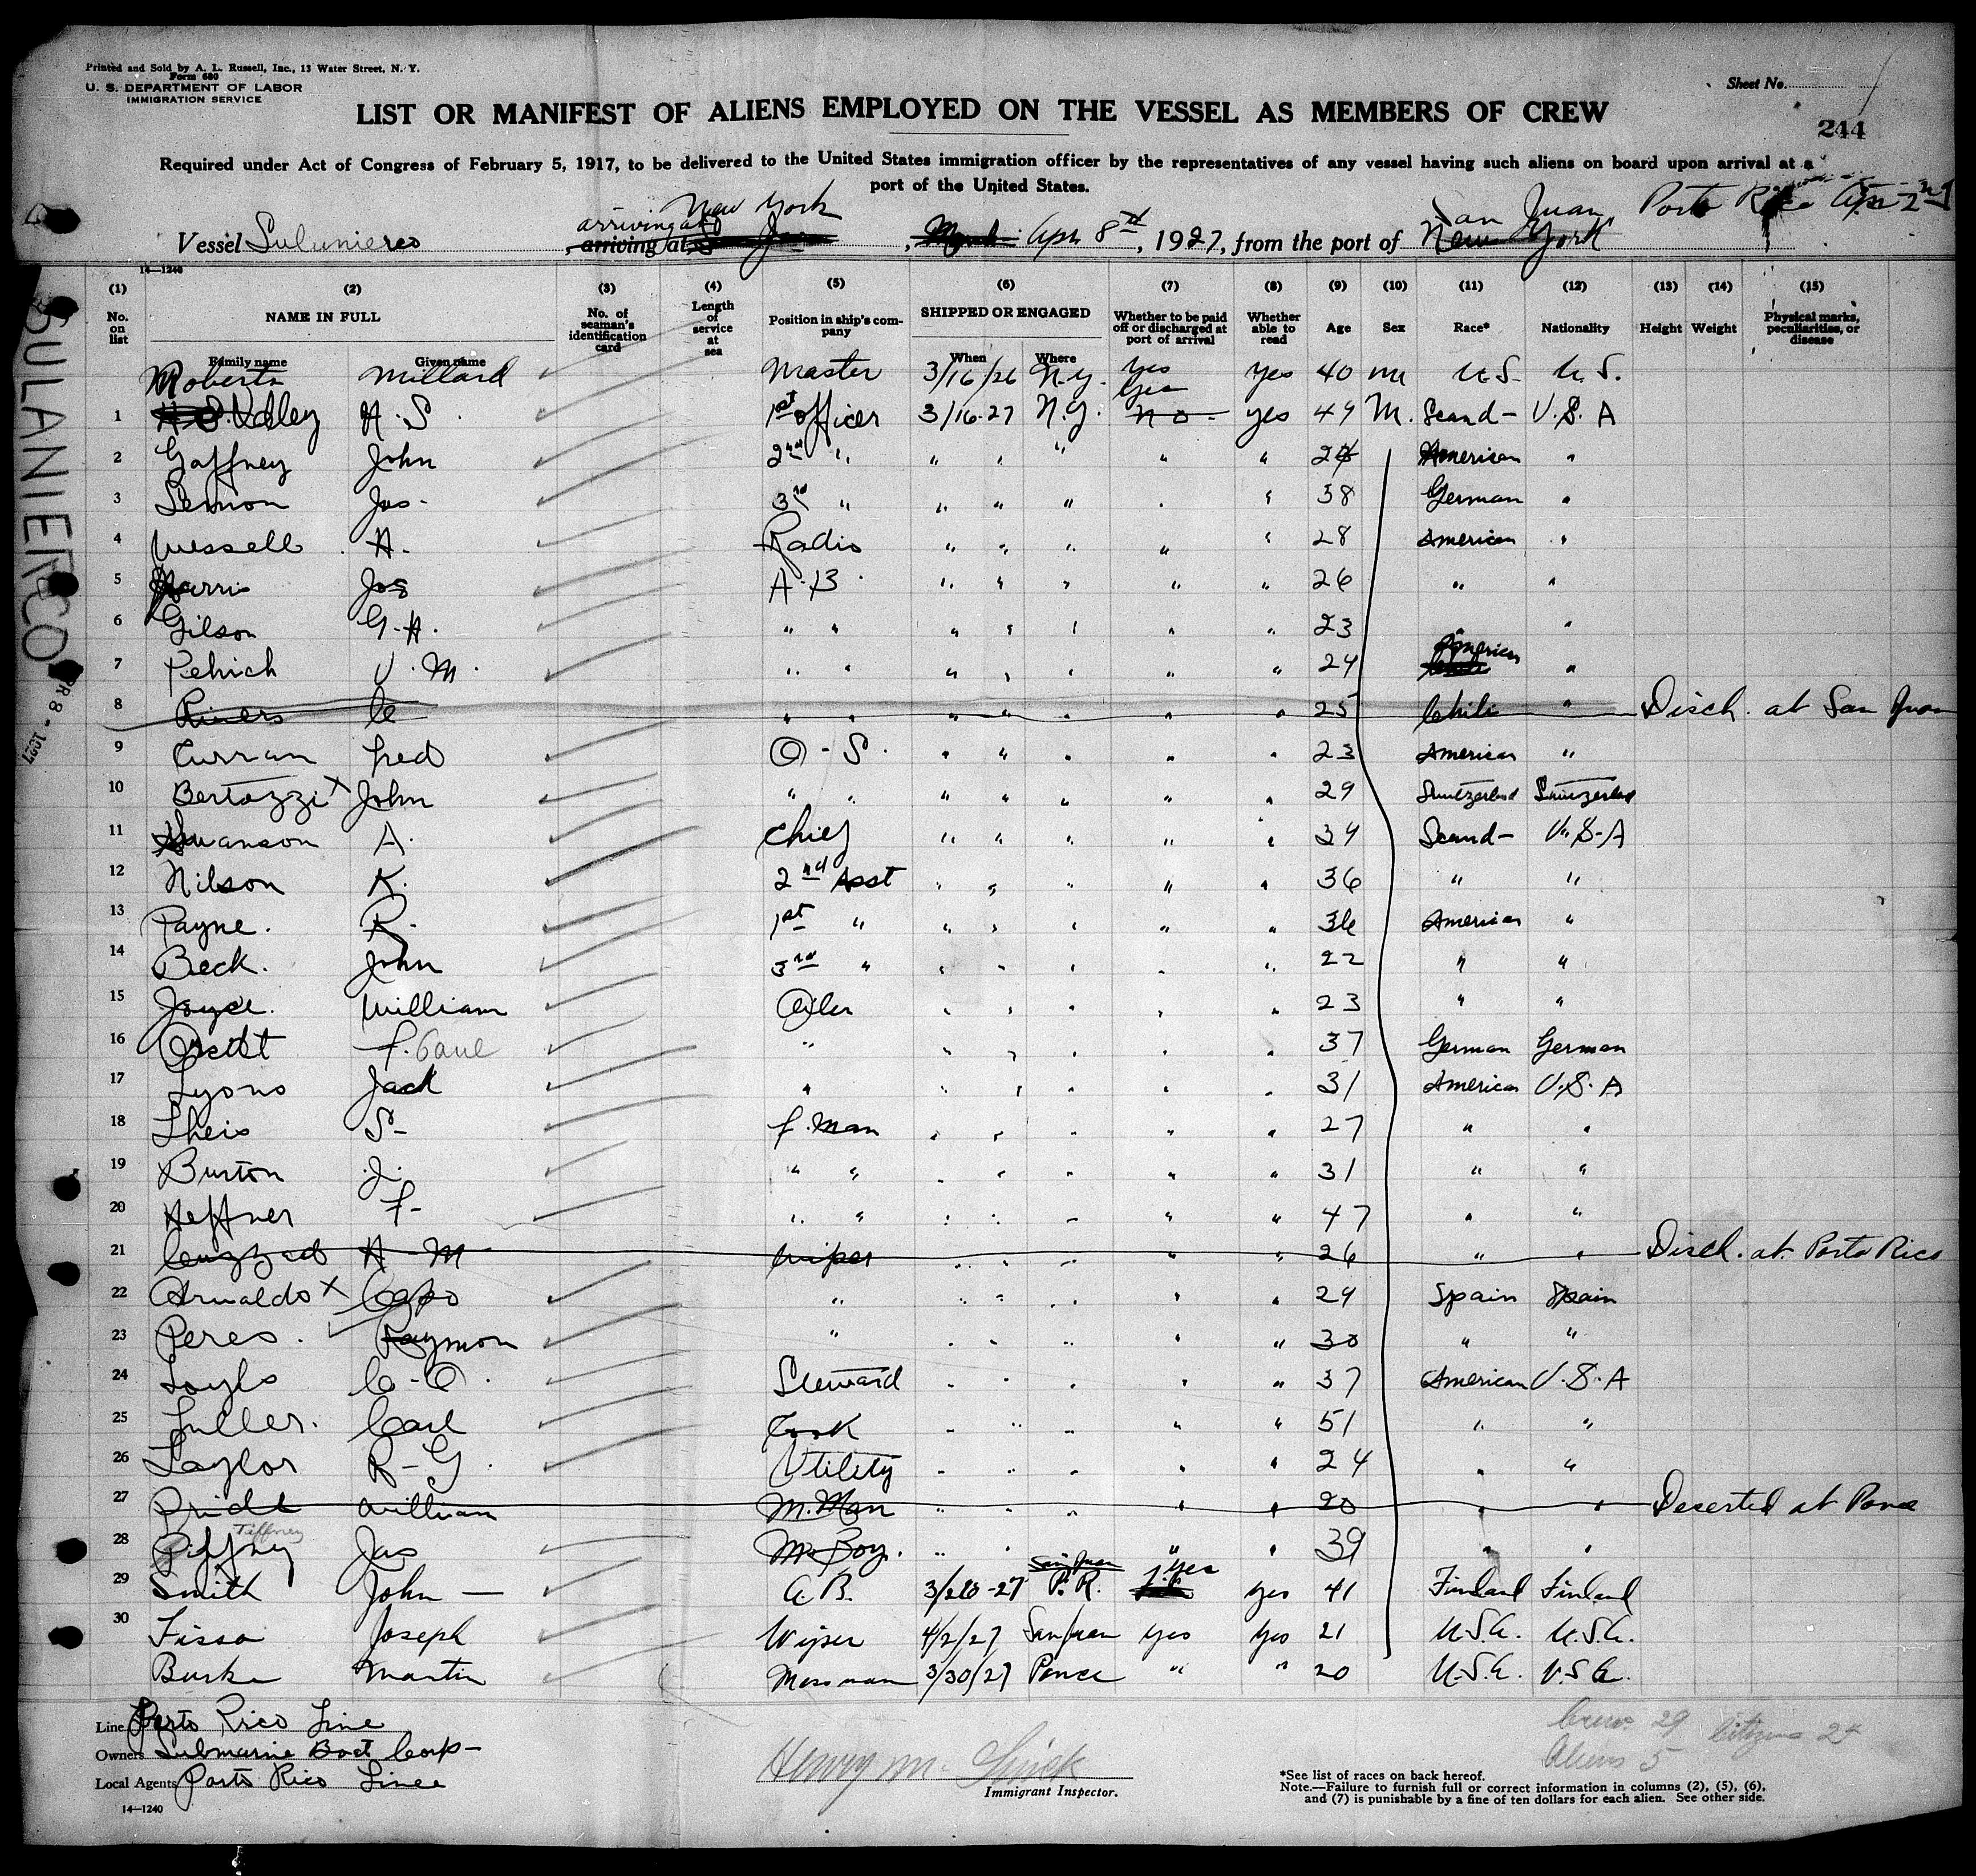 Printed and Sold by A. L. Russell, Inc., 13 Water Street, N. Y.
Form 680
U. S. DEPARTMENT OF LABOR
IMMIGRATION SERVICE
Sheet No.
LIST OR MANIFEST OF ALIENS EMPLOYED ON THE VESSEL AS MEMBERS OF CREW
244
Required under Act of Congress of February 5, 1917, to be delivered to the United States immigration officer by the representatives of any vessel having such aliens on board upon arrival at a
port of the United States.
Vessel arriving at New York, Apr 8, 1927, from the port of San Juan Porto Rico Apr 2nd
New York
SULANIERCO
14—1240
(1) (2) (3) (4) (5) (6) (7) (8) (9) (10) (11) (12) (13) (14) (15)
No. on list NAME IN FULL No. of seaman's identification card Length of service at sea Position in ship's company SHIPPED OR ENGAGED Whether to be paid off or discharged at port of arrival Whether able to read Age Sex Race* Nationality Height Weight Physical marks, peculiarities, or disease
Family name Given name When Where
Roberts Millard Master 3/16/26 N.Y. yes yes 40 m U.S. U.S.
1 H. S. 1st officer 3/16-27 N.Y. yes no yes 49 M. Scand- U.S.A
2 Gaffney John 2nd " " " " " " American "
3 Lennon Jas- 3rd " " " " " " 38 German "
4 Wessell A. Radio " " " " " 28 American "
5 Harris Jos A-B " " " " " 26 " "
6 Gilson G.H. " " " " " " " 23 " "
7 Pehich V.M. " " " " " " " 24 American "
8 Rivers C " " " " " " " 25 Chili " Disch. at San Juan
9 Curran Fred O-S. " " " " " 23 American "
10 Bertozzi x John " " " " " " " 29 Switzerland Switzerland
11 Swanson A. Chief " " " " " 34 Scand- U.S-A
12 Nilson K. 2nd Asst " " " " " 36 " "
13 Payne. R. 1st " " " " " " 36 American "
14 Beck. John 3rd " " " " " " 22 " "
15 Joyce. William Oiler " " " " " 23 " "
16 " " " " " " 37 German German
17 Lyons Jack " " " " " " 31 American U.S.A
18 Theis S- F.Man " " " " " 27 " "
19 Burton J. " " " " " " " 31 " "
20 Heffner F- " " " " " " " 47 " "
21 A-M Wiper " " " " " 26 " " Disch. at Porto Rico
22 Arnaldo x Capo " " " " " " 29 Spain Spain
23 Peres. Raymon " " " " " " 30 " "
24 C-O. Steward " " " " " 37 American U.S.A
25 Fuller. Carl Cook " " " " " 51 " "
26 Taylor R-G. Utility " " " " " 24 " "
27 Pride William M.Man " " " " " 20 " " Deserted at Ponce
Tiffney
28 Piffney Jas M.Boy. " " " " " 39 " "
29 Smith John A.B. 3/28-27 San Juan P.R. yes yes 41 Finland Finland
30 Fissa Joseph Wiper 4/2/27 San Juan yes yes 21 U.S.A. U.S.A.
Burke Martin Messman 3/30/27 Ponce " " 20 U.S.A. U.S.A.
Line Porto Rico Line
Owners Submarine Boat Corp-
Local Agents Porto Rico Line
14—1240
Henry M.
Immigrant Inspector.
Crew 29 Citizens 24
Aliens 5
*See list of races on back hereof.
Note.—Failure to furnish full or correct information in columns (2), (5), (6),
and (7) is punishable by a fine of ten dollars for each alien. See other side.